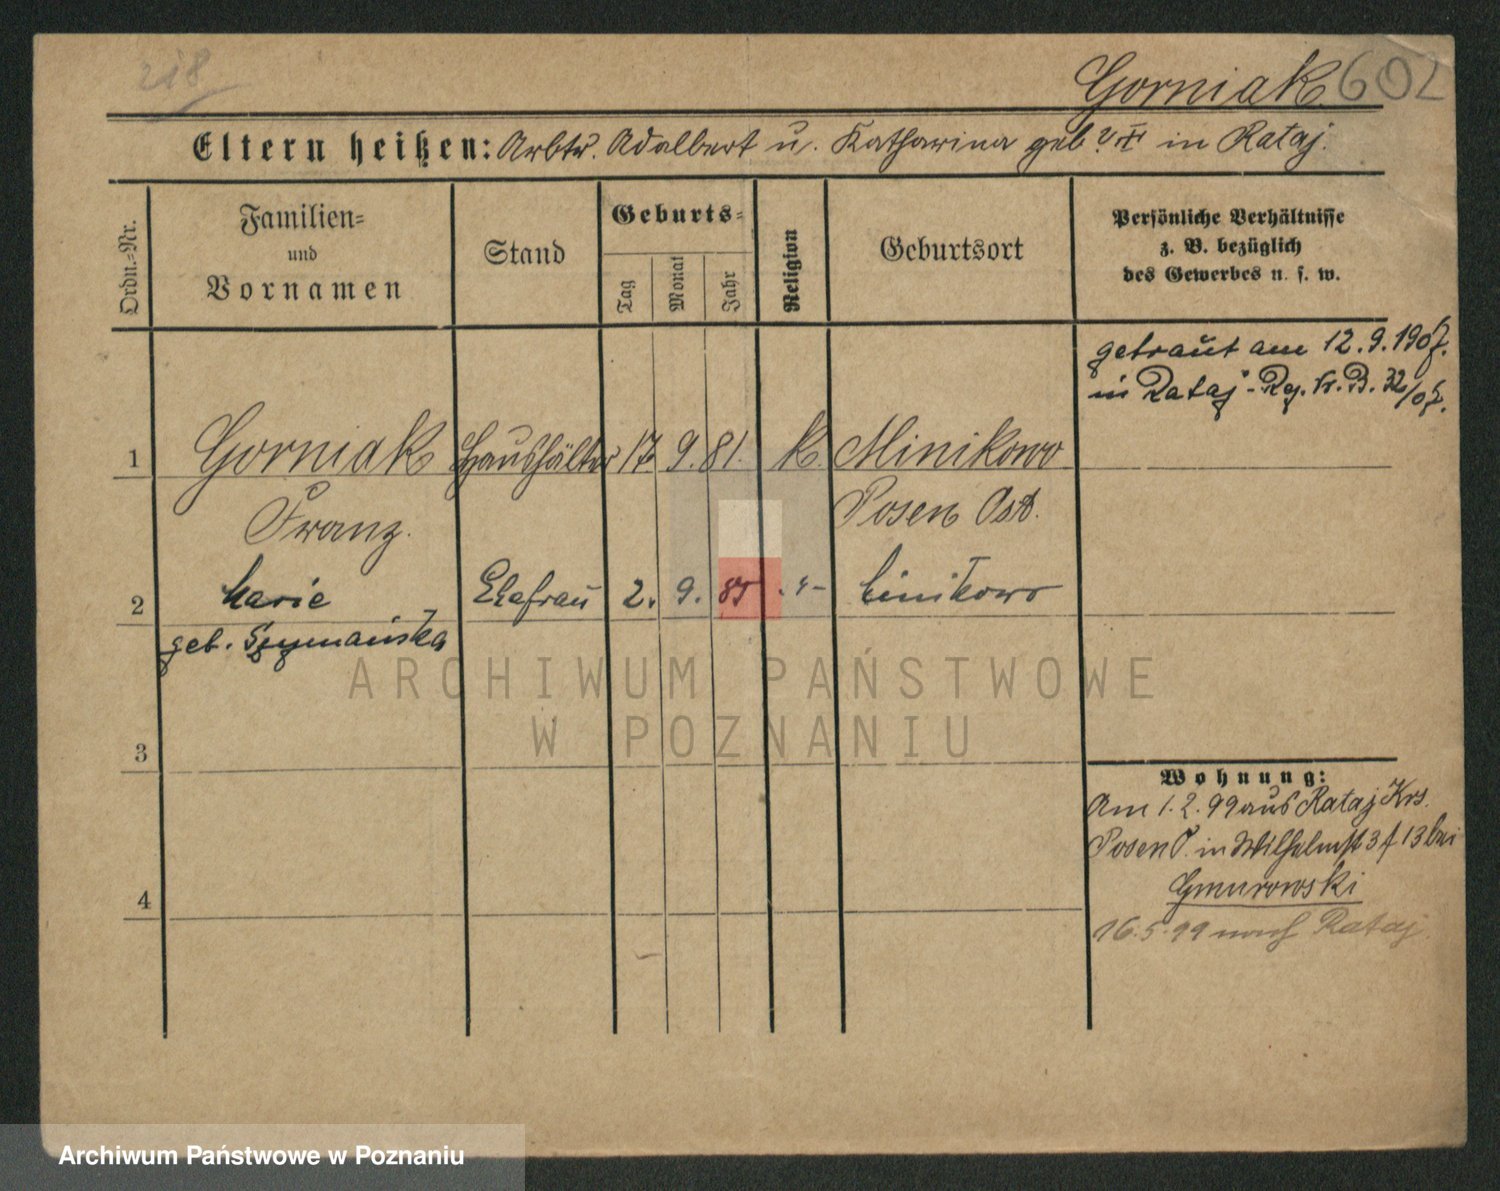 218
Gorniak 602
Eltern heißen: Arbtr. Adalbert u. Katharina geb ? in Rataj.
Ordn.-Nr.
Familien-
und
Vornamen
Stand
Geburts-
Tag
Monat
Jahr
Religion
Geburtsort
Persönliche Verhältnisse
z. B. bezüglich
des Gewerbes u. s. w.
getraut am 12.9.1907.
in Rataj - Reg. Nr. B. 32/07.
1 Gorniak Haushälter 17. 9. 81. k. Minikowo
Franz. Posen Ost.
2 Marie Ehefrau 2. 9. 85 Minikowo
geb. Szymańska
ARCHIWUM PAŃSTWOWE
W POZNANIU
3
Wohnung:
Am 1.2.99 aus Rataj Krs.
Posen O. in Wilhelmstr 3 f 13 bei
4
Gmurowski
16.5.99 nach Rataj.
Archiwum Państwowe w Poznaniu